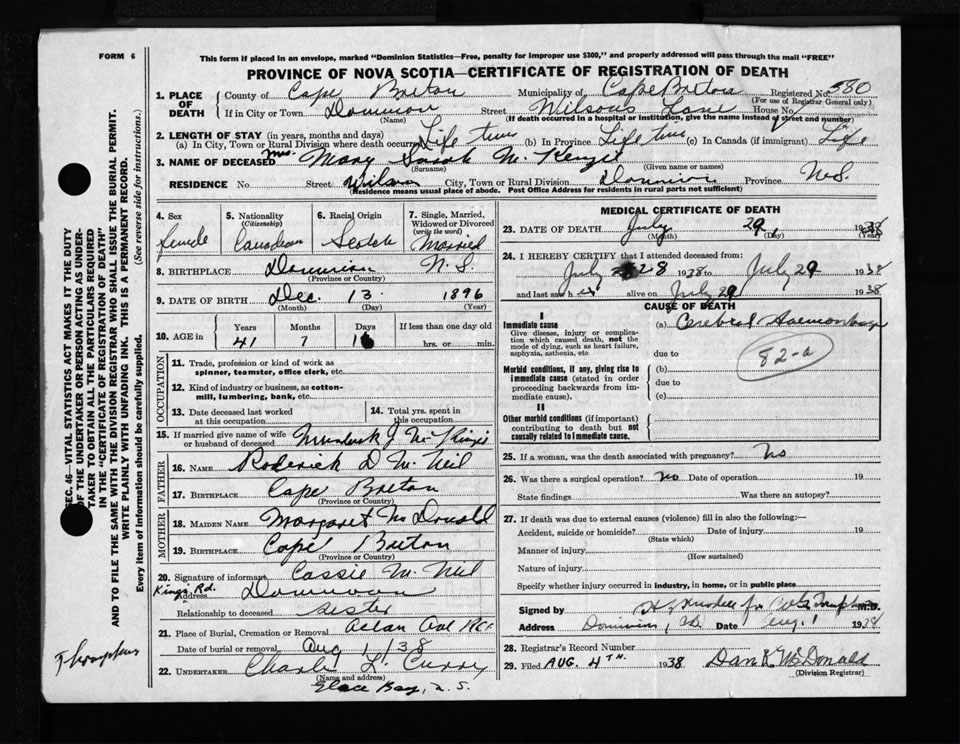 FORM 6
This form if placed in an envelope, marked "Dominion Statistics—Free, penalty for improper use $300," and properly addressed will pass through the mail "FREE"
PROVINCE OF NOVA SCOTIA—CERTIFICATE OF REGISTRATION OF DEATH
SEC. 46—VITAL STATISTICS ACT MAKES IT THE DUTY
OF THE UNDERTAKER OR PERSON ACTING AS UNDER-
TAKER TO OBTAIN ALL THE PARTICULARS REQUIRED
IN THE "CERTIFICATE OF REGISTRATION OF DEATH"
AND TO FILE THE SAME WITH THE DIVISION REGISTRAR WHO SHALL ISSUE THE BURIAL PERMIT.
WRITE PLAINLY WITH UNFADING INK. THIS IS A PERMANENT RECORD.
Every item of information should be carefully supplied. (See reverse side for instructions.)
1. PLACE OF DEATH
County of Cape Breton Municipality of Cape Breton Registered No. 580
(For use of Registrar General only)
If in City or Town Dominion Street Wilsons Lane House No.
(Name) (If death occurred in a hospital or institution, give the name instead of street and number)
2. LENGTH OF STAY (in years, months and days)
(a) In City, Town or Rural Division where death occurred Life time (b) In Province Life time (c) In Canada (if immigrant) Life
3. NAME OF DECEASED Mrs. Mary Sarah
(Surname) (Given name or names)
RESIDENCE No. Street Wilson City, Town or Rural Division Dominion Province N.S.
(Residence means usual place of abode. Post Office Address for residents in rural parts not sufficient)
4. Sex Female
5. Nationality (Citizenship) Canadian
6. Racial Origin Scotch
7. Single, Married, Widowed or Divorced (write the word) Married
8. BIRTHPLACE Dominion N.S.
(Province or Country)
9. DATE OF BIRTH Dec. 13 1896
(Month) (Day) (Year)
10. AGE IF Years 41 Months 7 Days 16 If less than one day old hrs. or min.
OCCUPATION
11. Trade, profession or kind of work as spinner, teamster, office clerk, etc.
12. Kind of industry or business, as cotton-mill, lumbering, bank, etc.
13. Date deceased last worked at this occupation
14. Total yrs. spent in this occupation
15. If married give name of wife or husband of deceased Murdock J.
FATHER
16. NAME Roderick D. McNeil
17. BIRTHPLACE Cape Breton
(Province or Country)
MOTHER
18. MAIDEN NAME Margaret McDonald
19. BIRTHPLACE Cape Breton
(Province or Country)
20. Signature of informant Cassie McNeil
King's Rd. Address Dominion
Relationship to deceased sister
21. Place of Burial, Cremation or Removal
Date of burial or removal Aug 1/38
22. UNDERTAKER Charles L. Curry
(Name and address)
Glace Bay, N.S.
MEDICAL CERTIFICATE OF DEATH
23. DATE OF DEATH July 29, 1938
(Month) (Day) (Year)
24. I HEREBY CERTIFY that I attended deceased from:
July 28 1938 to July 29 1938
and last saw her alive on July 29 1938
CAUSE OF DEATH
I
Immediate cause (a) Cerebral Haemorrhage
Give disease, injury or complication which caused death, not the mode of dying, such as heart failure, asphyxia, asthenia, etc. due to
82-a
Morbid conditions, if any, giving rise to immediate cause (stated in order proceeding backwards from immediate cause). (b)
due to
(c)
II
Other morbid conditions (if important) contributing to death but not causally related to immediate cause.
25. If a woman, was the death associated with pregnancy? No
26. Was there a surgical operation? No Date of operation 19
State findings Was there an autopsy?
27. If death was due to external causes (violence) fill in also the following:—
Accident, suicide or homicide? Date of injury 19
(State which)
Manner of injury
(How sustained)
Nature of injury
Specify whether injury occurred in industry, in home, or in public place
Signed by M.D.
Address Dominion, C.B. Date Aug. 1 1938
28. Registrar's Record Number
29. Filed AUG. 4TH. 1938 Dan R. McDonald
(Division Registrar)